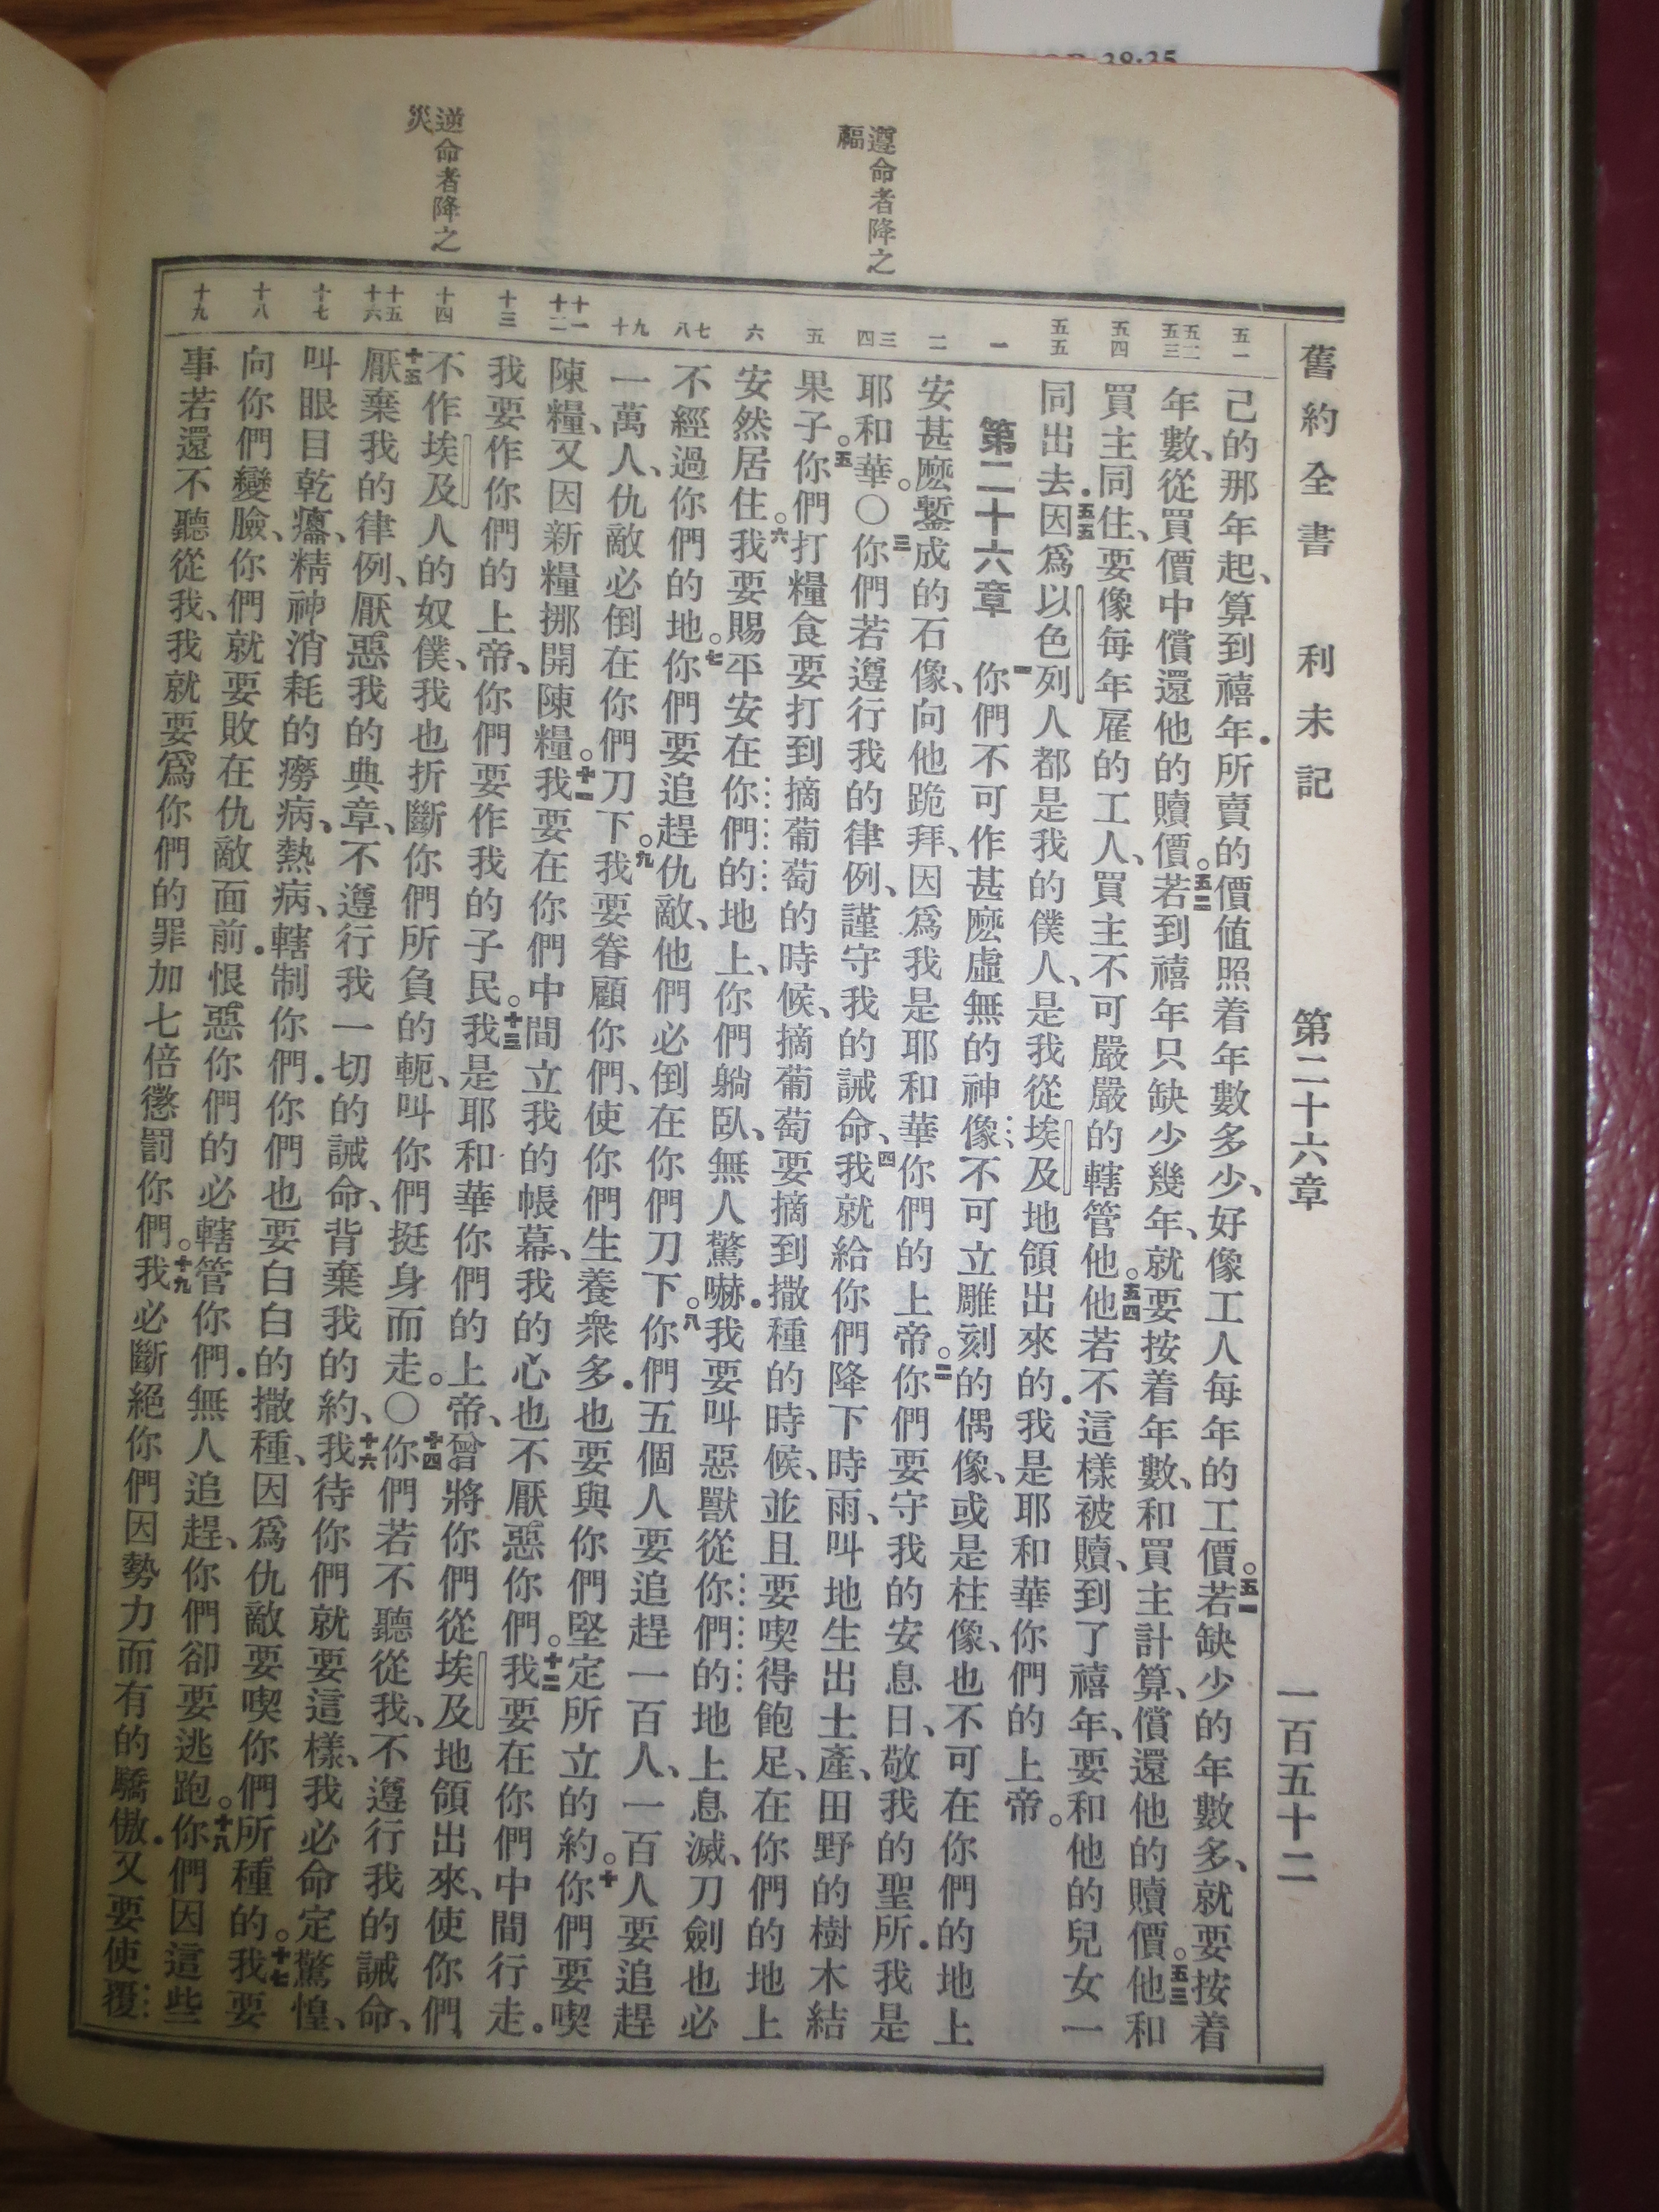 38:35
舊約全書 利未記 第二十六章 一百五十二
遵命者降之
福
逆命者降之
災
五一
五二
五三
五四
五五
一
二
三
四
五
六
七
八
九
十
十一
十二
十三
十四
十五
十六
十七
十八
十九
己的那年起、算到禧年．所賣的價値照着年數多少、好像工人每年的工價。五一若缺少的年數多、就要按着
年數、從買價中償還他的贖價。五二若到禧年只缺少幾年、就要按着年數、和買主計算、償還他的贖價。五三他和
買主同住、要像每年雇的工人、買主不可嚴嚴的轄管他。五四他若不這樣被贖、到了禧年、要和他的兒女一
同出去．五五因爲以色列人都是我的僕人、是我從埃及地領出來的．我是耶和華你們的上帝。
第二十六章 一你們不可作甚麽虛無的神像、不可立雕刻的偶像、或是柱像、也不可在你們的地上
安甚麽鏨成的石像、向他跪拜、因爲我是耶和華你們的上帝。二你們要守我的安息日、敬我的聖所．我是
耶和華。〇三你們若遵行我的律例、謹守我的誡命、四我就給你們降下時雨、叫地生出土產、田野的樹木結
果子。五你們打糧食要打到摘葡萄的時候、摘葡萄要摘到撒種的時候、並且要喫得飽足、在你們的地上
安然居住。六我要賜平安在你們的地上、你們躺臥、無人驚嚇．我要叫惡獸從你們的地上息滅、刀劍也必
不經過你們的地。七你們要追趕仇敵、他們必倒在你們刀下。八你們五個人要追趕一百人、一百人要追趕
一萬人、仇敵必倒在你們刀下。九我要眷顧你們、使你們生養衆多．也要與你們堅定所立的約。十你們要喫
陳糧、又因新糧挪開陳糧。十一我要在你們中間立我的帳幕、我的心也不厭惡你們。十二我要在你們中間行走．
我要作你們的上帝、你們要作我的子民。十三我是耶和華你們的上帝、曾將你們從埃及地領出來、使你們
不作埃及人的奴僕、我也折斷你們所負的軛、叫你們挺身而走。〇十四你們若不聽從我、不遵行我的誡命、
十五厭棄我的律例、厭惡我的典章、不遵行我一切的誡命、背棄我的約、十六我待你們就要這樣、我必命定驚惶、
叫眼目乾癟、精神消耗的癆病、熱病、轄制你們．你們也要白白的撒種、因爲仇敵要喫你們所種的。十七我要
向你們變臉、你們就要敗在仇敵面前．恨惡你們的必轄管你們．無人追趕、你們卻要逃跑。十八你們因這些
事若還不聽從我、我就要爲你們的罪加七倍懲罰你們。十九我必斷絕你們因勢力而有的驕傲．又要使覆